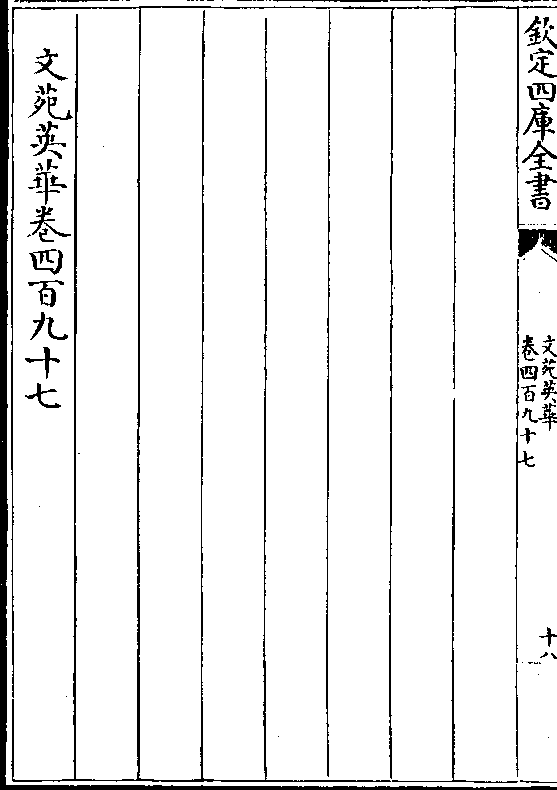 欽定四庫全書
文苑英華
卷四百九十七
十八
文苑英華卷四百九十七